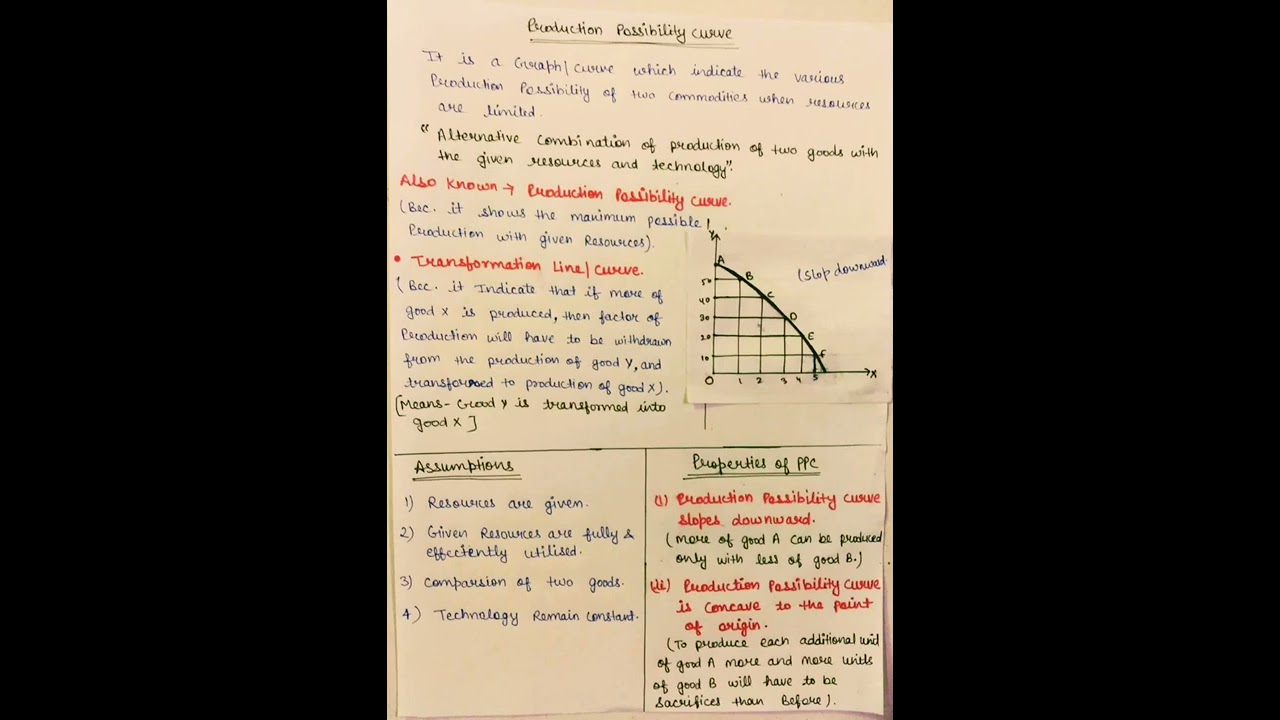 Production Possibility curve
It is a Graph/curve which indicate the various
Production Possibility of two commodities when resources
are limited.
"Alternative combination of production of two goods with
the given resources and technology".
Also Known → Production Possibility curve.
(Bec. it shows the maximum possible
Production with given Resources).
• Transformation Line/curve.
(Bec. it Indicate that if more of
good X is produced, then factor of
Production will have to be withdrawn
from the production of good Y, and
transformed to production of good X).
[Means- Good Y is transformed into
good X]
Y
(slop downward
A
50 B
40 C
30 D
20 E
10 F
0 1 2 3 4 5 X
Assumptions
1) Resources are given.
2) Given Resources are fully &
effectently utilised.
3) Comparsion of two goods.
4) Technology Remain constant.
Properties of PPC
(i) Production Possibility curve
slopes downward.
(more of good A can be produced
only with less of good B.)
(ii) Production Possibility curve
is concave to the point
of origin.
(To produce each additional unit
of good A more and more units
of good B will have to be
sacrifices than Before).